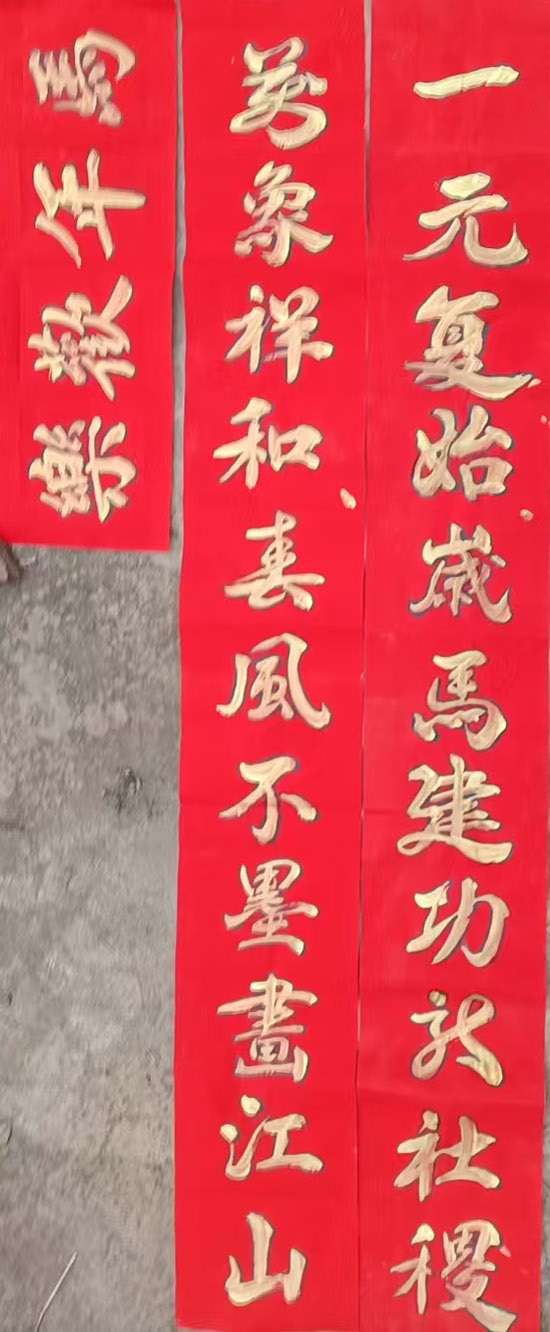 一元复始歲馬建功於社稷
萬象祥和春風不墨畫江山
馬年歡樂